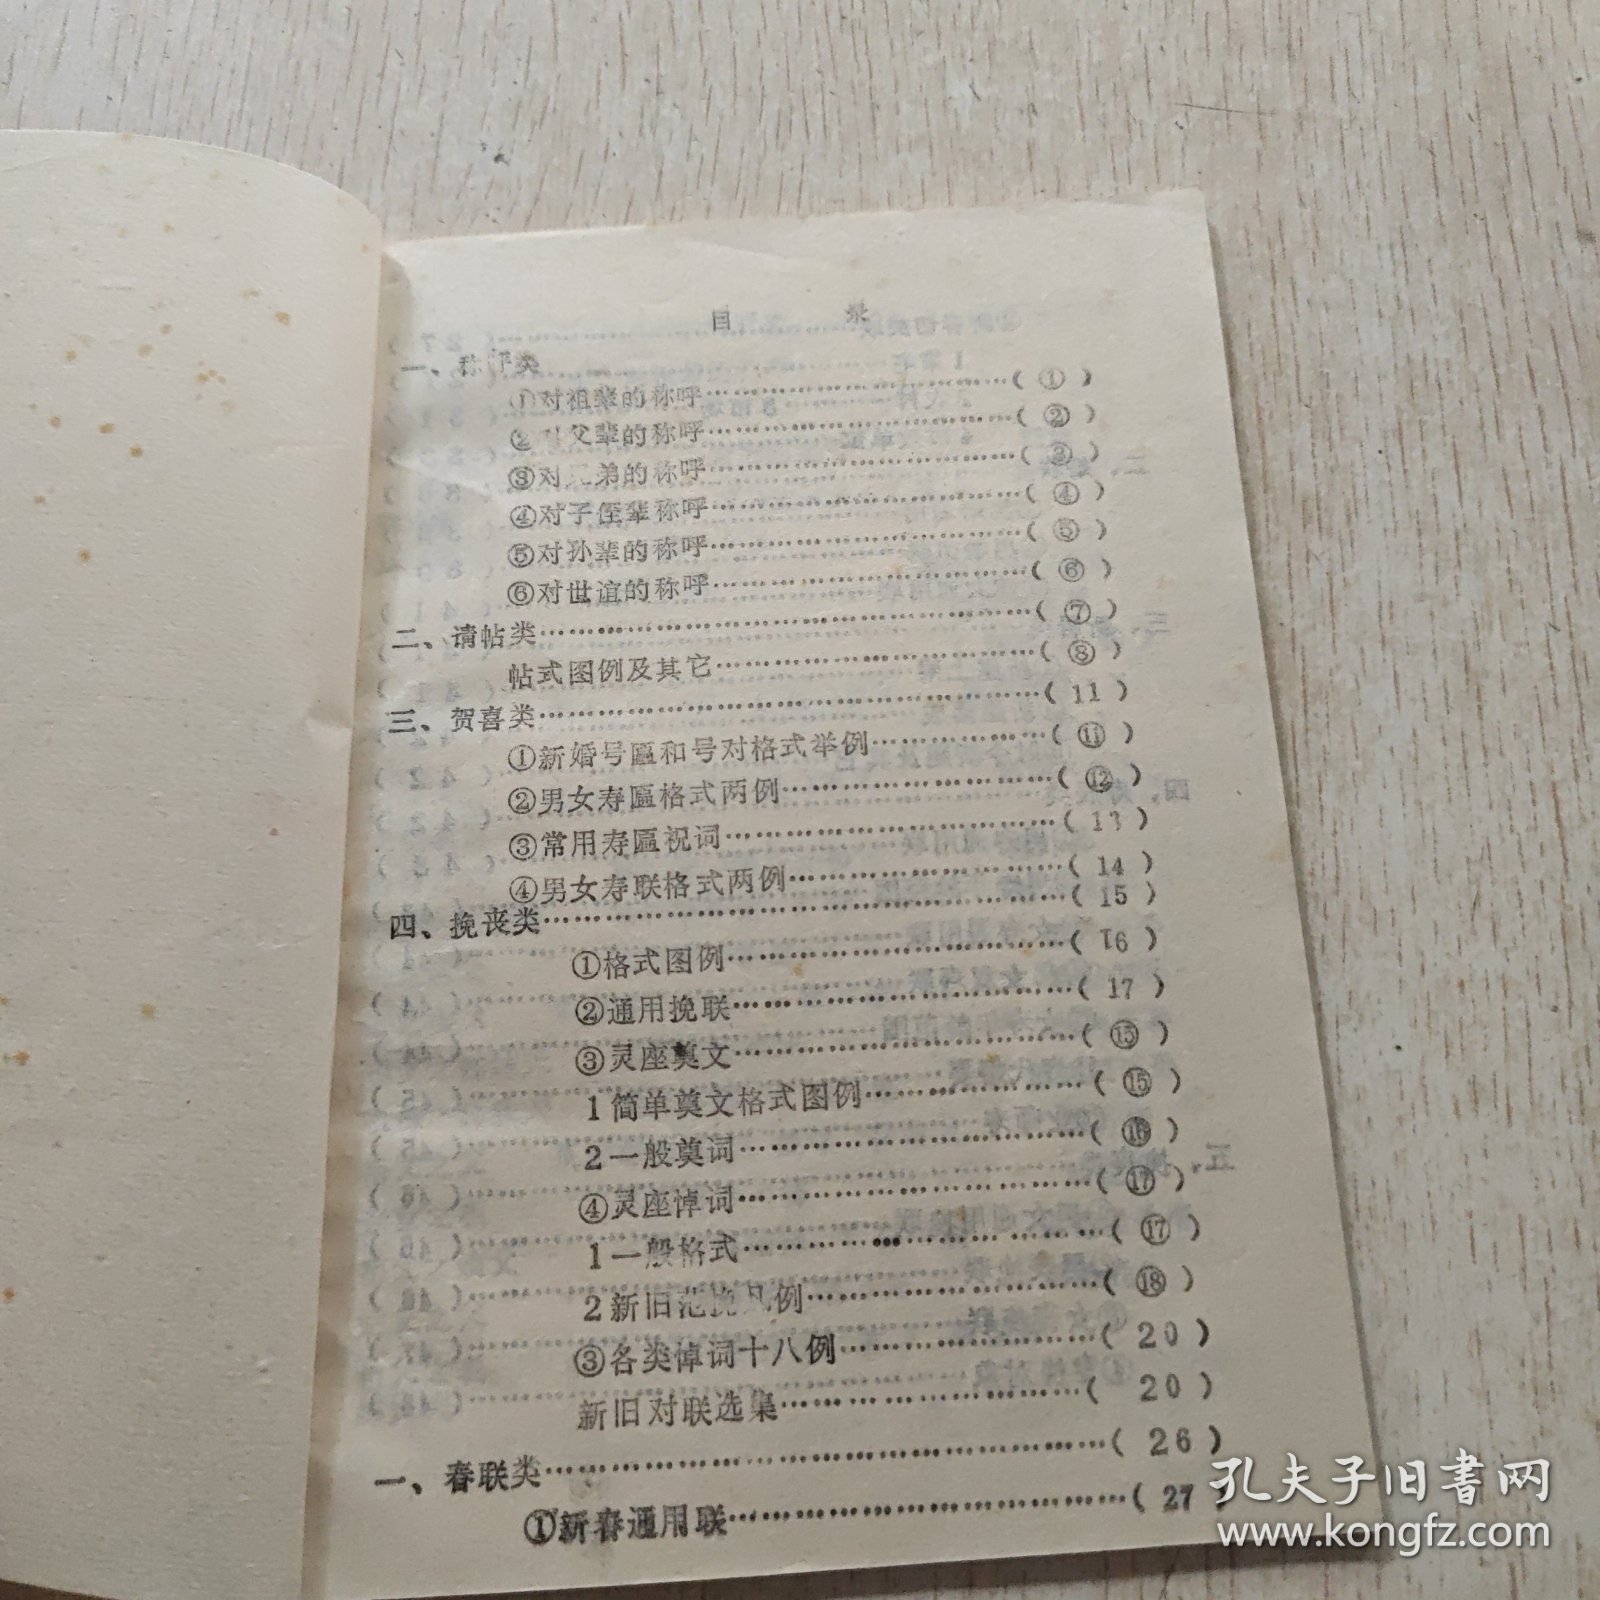 目 录
一、称呼类
①对祖辈的称呼……………………………( ① )
②对父辈的称呼……………………………( ② )
③对兄弟的称呼……………………………( ③ )
④对子侄辈称呼……………………………( ④ )
⑤对孙辈的称呼……………………………( ⑤ )
⑥对世谊的称呼……………………………( ⑥ )
二、请帖类……………………………………………( ⑦ )
帖式图例及其它……………………………( ⑧ )
三、贺喜类……………………………………………( 11 )
①新婚号匾和号对格式举例………………( ⑪ )
②男女寿匾格式两例………………………( ⑫ )
③常用寿匾祝词……………………………( 13 )
④男女寿联格式两例………………………( 14 )
四、挽丧类……………………………………………( 15 )
①格式图例…………………………………( 16 )
②通用挽联…………………………………( 17 )
③灵座奠文…………………………………( ⑮ )
1简单奠文格式图例………………………( ⑮ )
2一般奠词…………………………………( ⑯ )
④灵座悼词…………………………………( ⑰ )
1一般格式…………………………………( ⑰ )
2新旧范挽凡例……………………………( ⑱ )
③各类悼词十八例…………………………( 20 )
新旧对联选集………………………………( 20 )
一、春联类……………………………………………( 26 )
①新春通用联………………………………( 27 )
孔夫子旧书网
www.kongfz.com